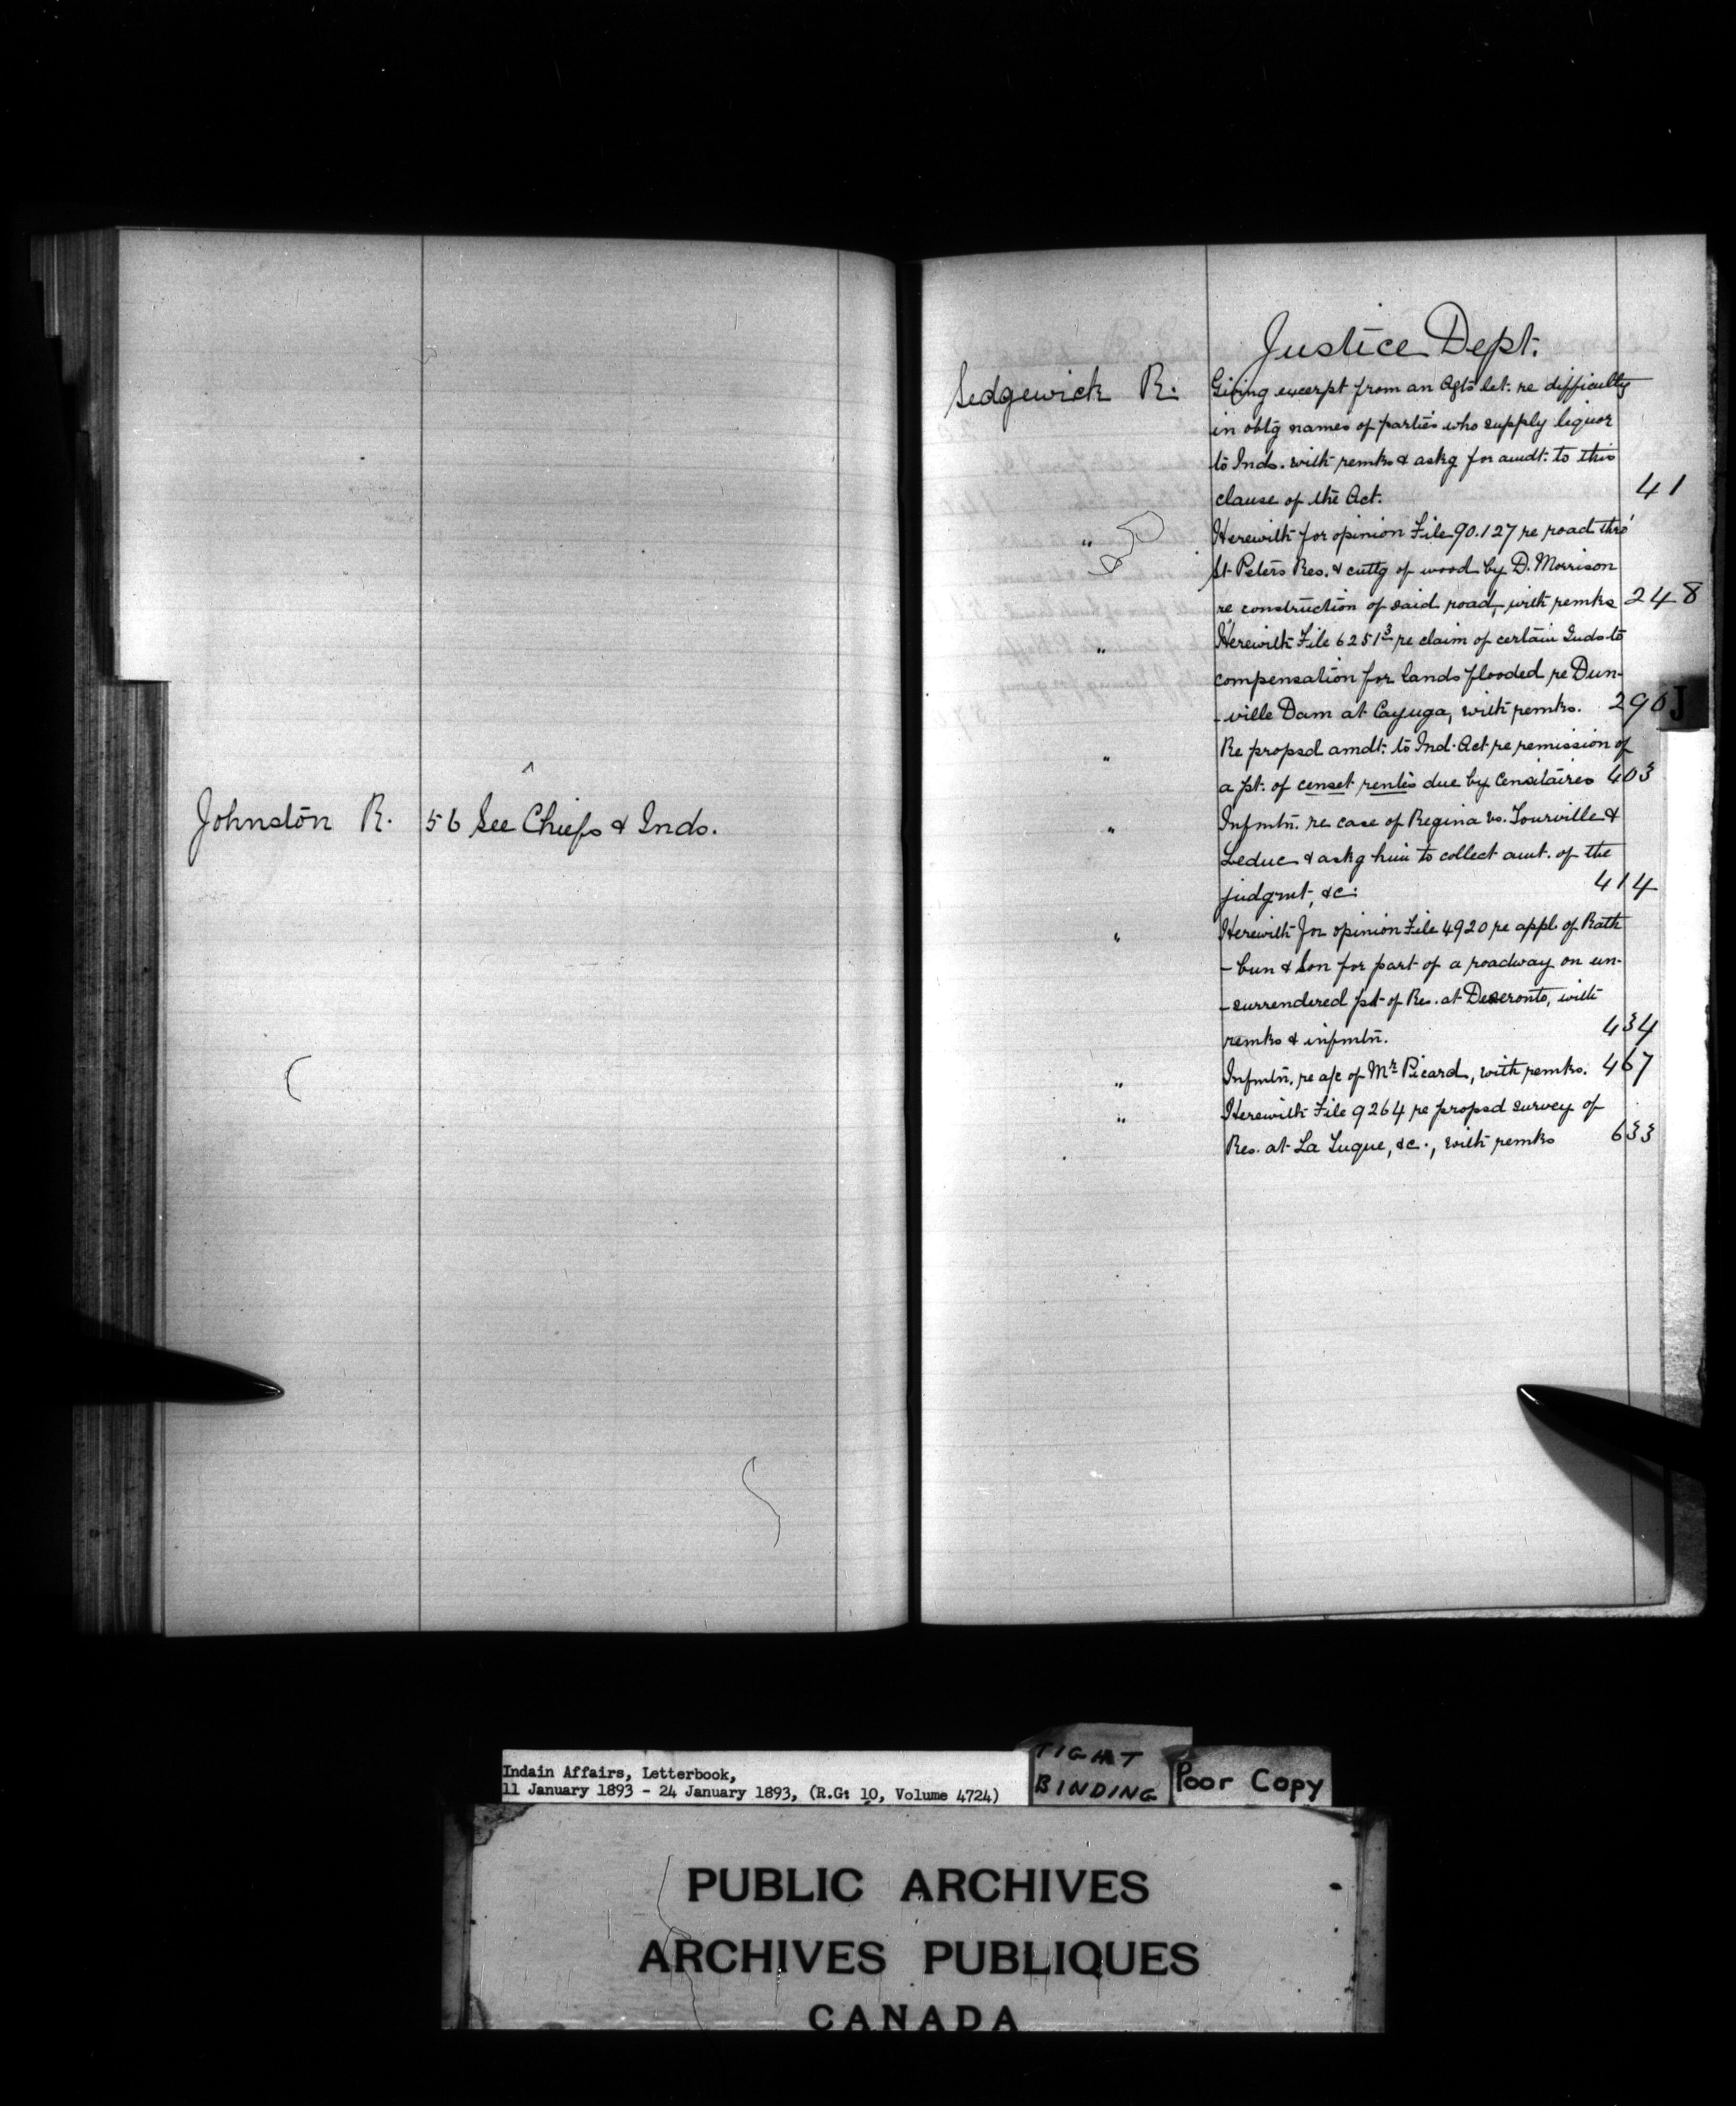 Johnston R. 56 See Chiefs & Inds.
Justice Dept.
Sedgewick R. Giving excerpt from an Agts let. re difficulty
in obtg names of parties who supply liquor
to Inds. with remks & askg for amdt. to this
clause of the Act. 41
" Herewith for opinion File 90.127 re road thro'
St Peters Res. & cuttg of wood by D. Morrison
re construction of said road, with remks 248
" Herewith File 6251³ re claim of certain Inds to
compensation for lands flooded re Dun-
-ville Dam at Cayuga, with remks. 290
J
" Re propsd amdt. to Ind. Act re remission of
a pt. of censet rentes due by Censitaires 403
" Infmtn. re case of Regina vs. Tourville &
Leduc & askg him to collect amt. of the
judgmt, &c: 414
" Herewith for opinion File 4920 re appl. of Rath
-bun & Son for part of a roadway on un-
-surrendered pt of Res. at Deseronto, with
remks & infmtn. 434
" Infmtn. re a/c of Mr Picard, with remks. 467
" Herewith File 9264 re propsd survey of
Res. at La Tuque, &c., with remks 633
Indain Affairs, Letterbook,
11 January 1893 - 24 January 1893, (R.G: 10, Volume 4724)
TIGHT
BINDING
Poor Copy
PUBLIC ARCHIVES
ARCHIVES PUBLIQUES
CANADA